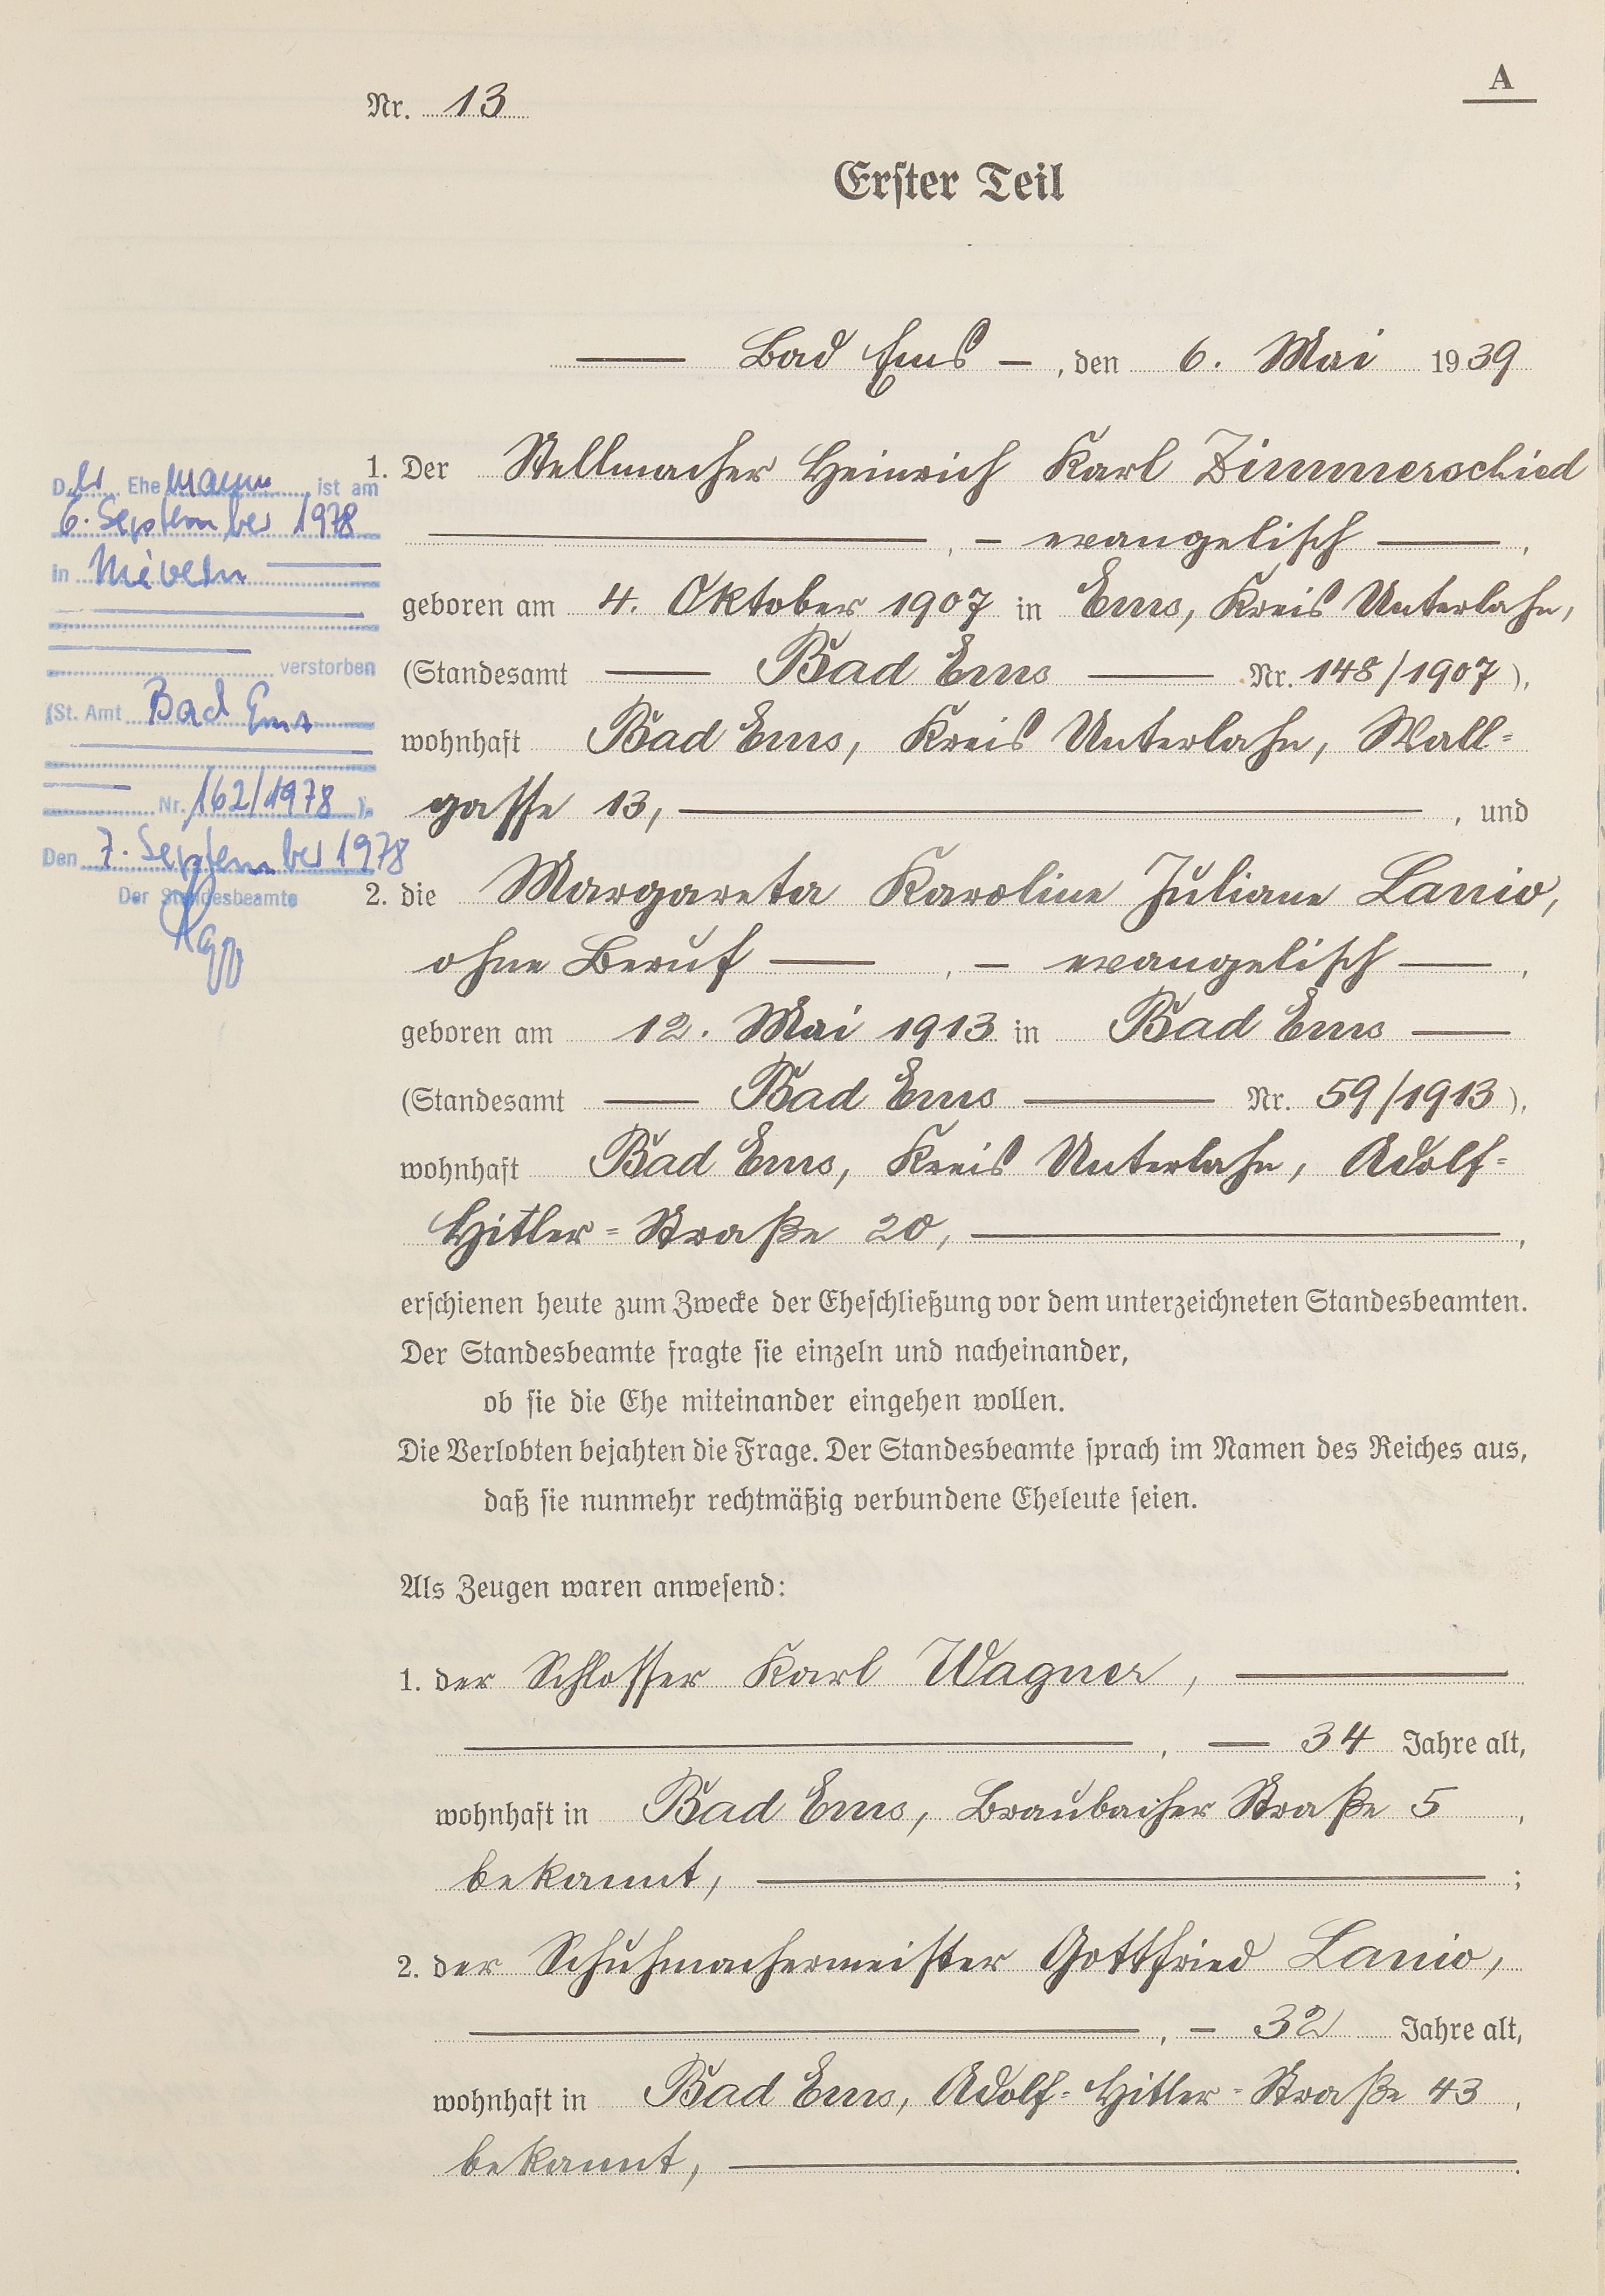 A
Nr. 13
Erster Teil
Bad Ems, den 6. Mai 1939
1. Der Stellmacher Heinrich Karl Zimmerschied
, evangelisch ,
geboren am 4. Oktober 1907 in Ems, Kreis Unterlahn,
(Standesamt Bad Ems Nr. 148/1907),
wohnhaft Bad Ems, Kreis Unterlahn, Wall=
gasse 13, , und
2. die Margareta Karoline Juliane Lanio,
ohne Beruf , evangelisch ,
geboren am 12. Mai 1913 in Bad Ems
(Standesamt Bad Ems Nr. 59/1913),
wohnhaft Bad Ems, Kreis Unterlahn, Adolf=
Hitler=Straße 20, ,
erschienen heute zum Zwecke der Eheschließung vor dem unterzeichneten Standesbeamten.
Der Standesbeamte fragte sie einzeln und nacheinander,
ob sie die Ehe miteinander eingehen wollen.
Die Verlobten bejahten die Frage. Der Standesbeamte sprach im Namen des Reiches aus,
daß sie nunmehr rechtmäßig verbundene Eheleute seien.
Als Zeugen waren anwesend:
1. der Schlosser Karl Wagner,
, 34 Jahre alt,
wohnhaft in Bad Ems, Braubacher Straße 5 ,
bekannt, ;
2. der Schuhmachermeister Gottfried Lanio,
, 32 Jahre alt,
wohnhaft in Bad Ems, Adolf=Hitler=Straße 43 ,
bekannt, .
Der Ehemann ist am
6. September 1978
in Nievern
verstorben
(St. Amt Bad Ems
Nr. 162/1978 ).
Den 7. September 1978
Der Standesbeamte